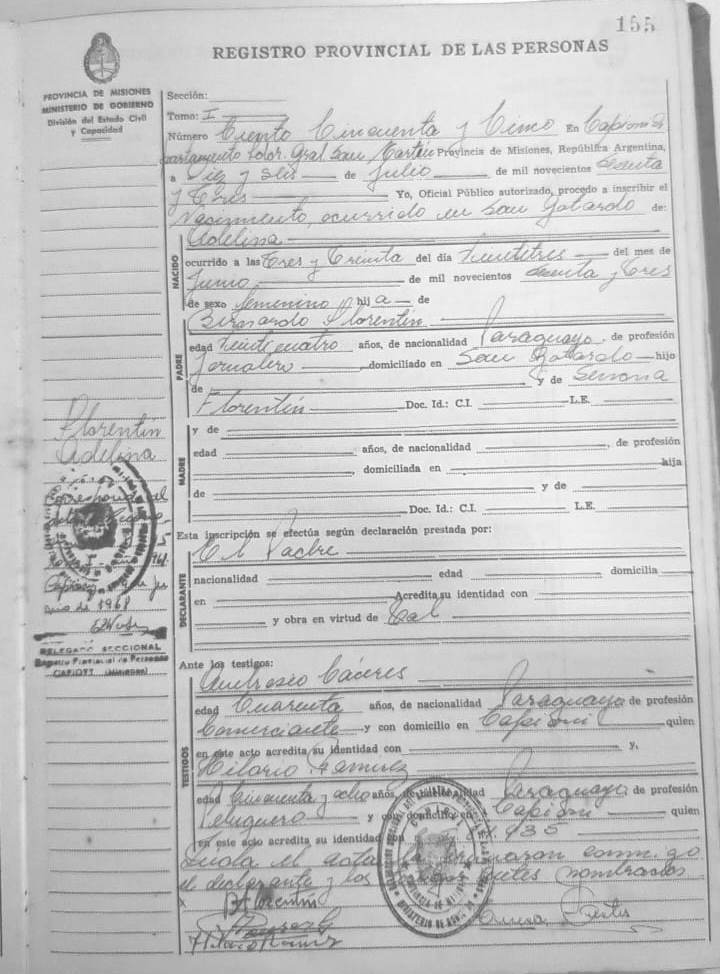 155
REGISTRO PROVINCIAL DE LAS PERSONAS
PROVINCIA DE MISIONES
MINISTERIO DE GOBIERNO
División del Estado Civil
y Capacidad
Sección:
Tomo: I
Número Ciento Cincuenta y Cinco En Capiovi D
partamento Ldor. Gral San Martin Provincia de Misiones, República Argentina,
a Diez y Seis de Julio de mil novecientos sesenta
y Tres Yo, Oficial Público autorizado, procedo a inscribir el
Nacimiento, ocurrido en San Gotardo de:
NACIDO
Adelina
ocurrido a las Tres y Treinta del día Veintitres del mes de
Junio de mil novecientos sesenta y tres
de sexo femenino hij a de
PADRE
Bernardo Florentin
edad Veinticuatro años, de nacionalidad Paraguayo, de profesión
Jornalero, domiciliado en San Gotardo hijo
de y de
Florentin Doc. Id.: C.I. L.E.
MADRE
y de
edad años, de nacionalidad, de profesión
, domiciliada en hija
de y de
Doc. Id.: C.I. L.E.
Florentin
Adelina
Capiovi
de 1968
DELEGADO SECCIONAL
Registro Provincial de Personas
CAPIOVI (MISIONES)
Esta inscripción se efectúa según declaración prestada por:
DECLARANTE
El Padre
nacionalidad edad domicilia
en Acredita su identidad con
y obra en virtud de Tal
Ante los testigos:
TESTIGOS
Cáceres
edad Cuarenta años, de nacionalidad Paraguaya de profesión
Comerciante y con domicilio en Capiovi quien
en este acto acredita su identidad con y,
Hilario Ramirez
edad Cincuenta y ocho años, de nacionalidad Paraguaya de profesión
Peluquero y con domicilio en Capiovi quien
en este acto acredita su identidad con
Leida el acta la firmaron conmigo
el declarante y los nombrados
B Florentin
Hilario Ramirez